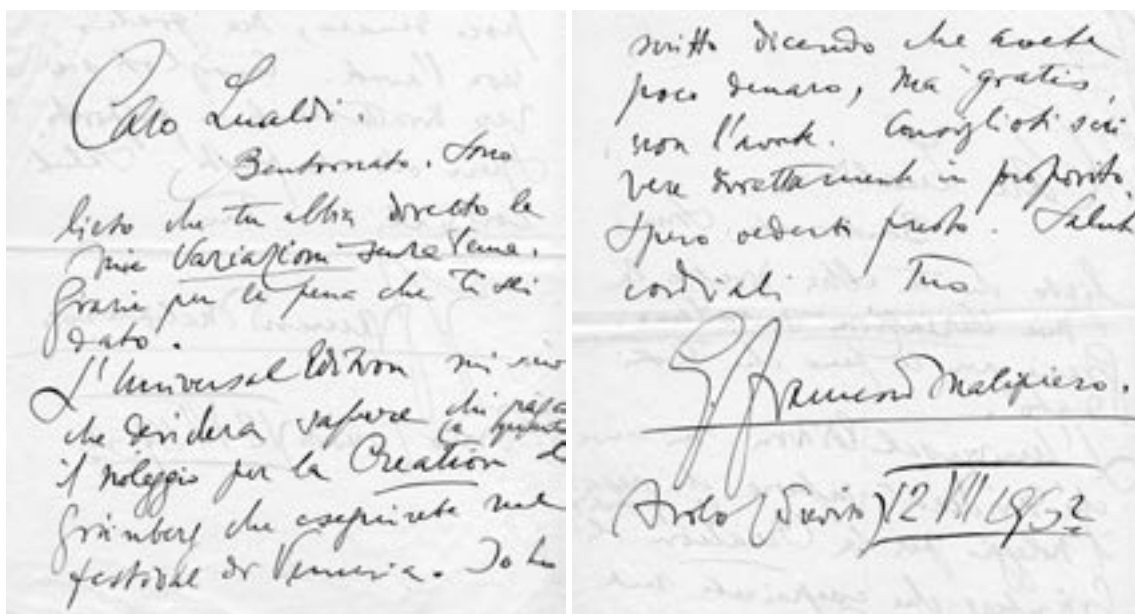 Caro Lualdi.
Bentornato. Sono
lieto che tu abbia diretto le
mie Variazioni senza tema.
Grazie per la pena che ti sei
dato.
L'Universal Edition mi
che desidera sapere chi paga
il noleggio per la Creation
Grünberg che eseguirete nel
festival di Venezia. Io ho
scritto dicendo che avete
poco denaro, ma gratis,
non l'avrete. Consiglioti scri
vere direttamente in proposito.
Spero vederti presto. Saluti
cordiali tuo
G. Francesco Malipiero.
Asolo (Treviso) 12 VII 1932